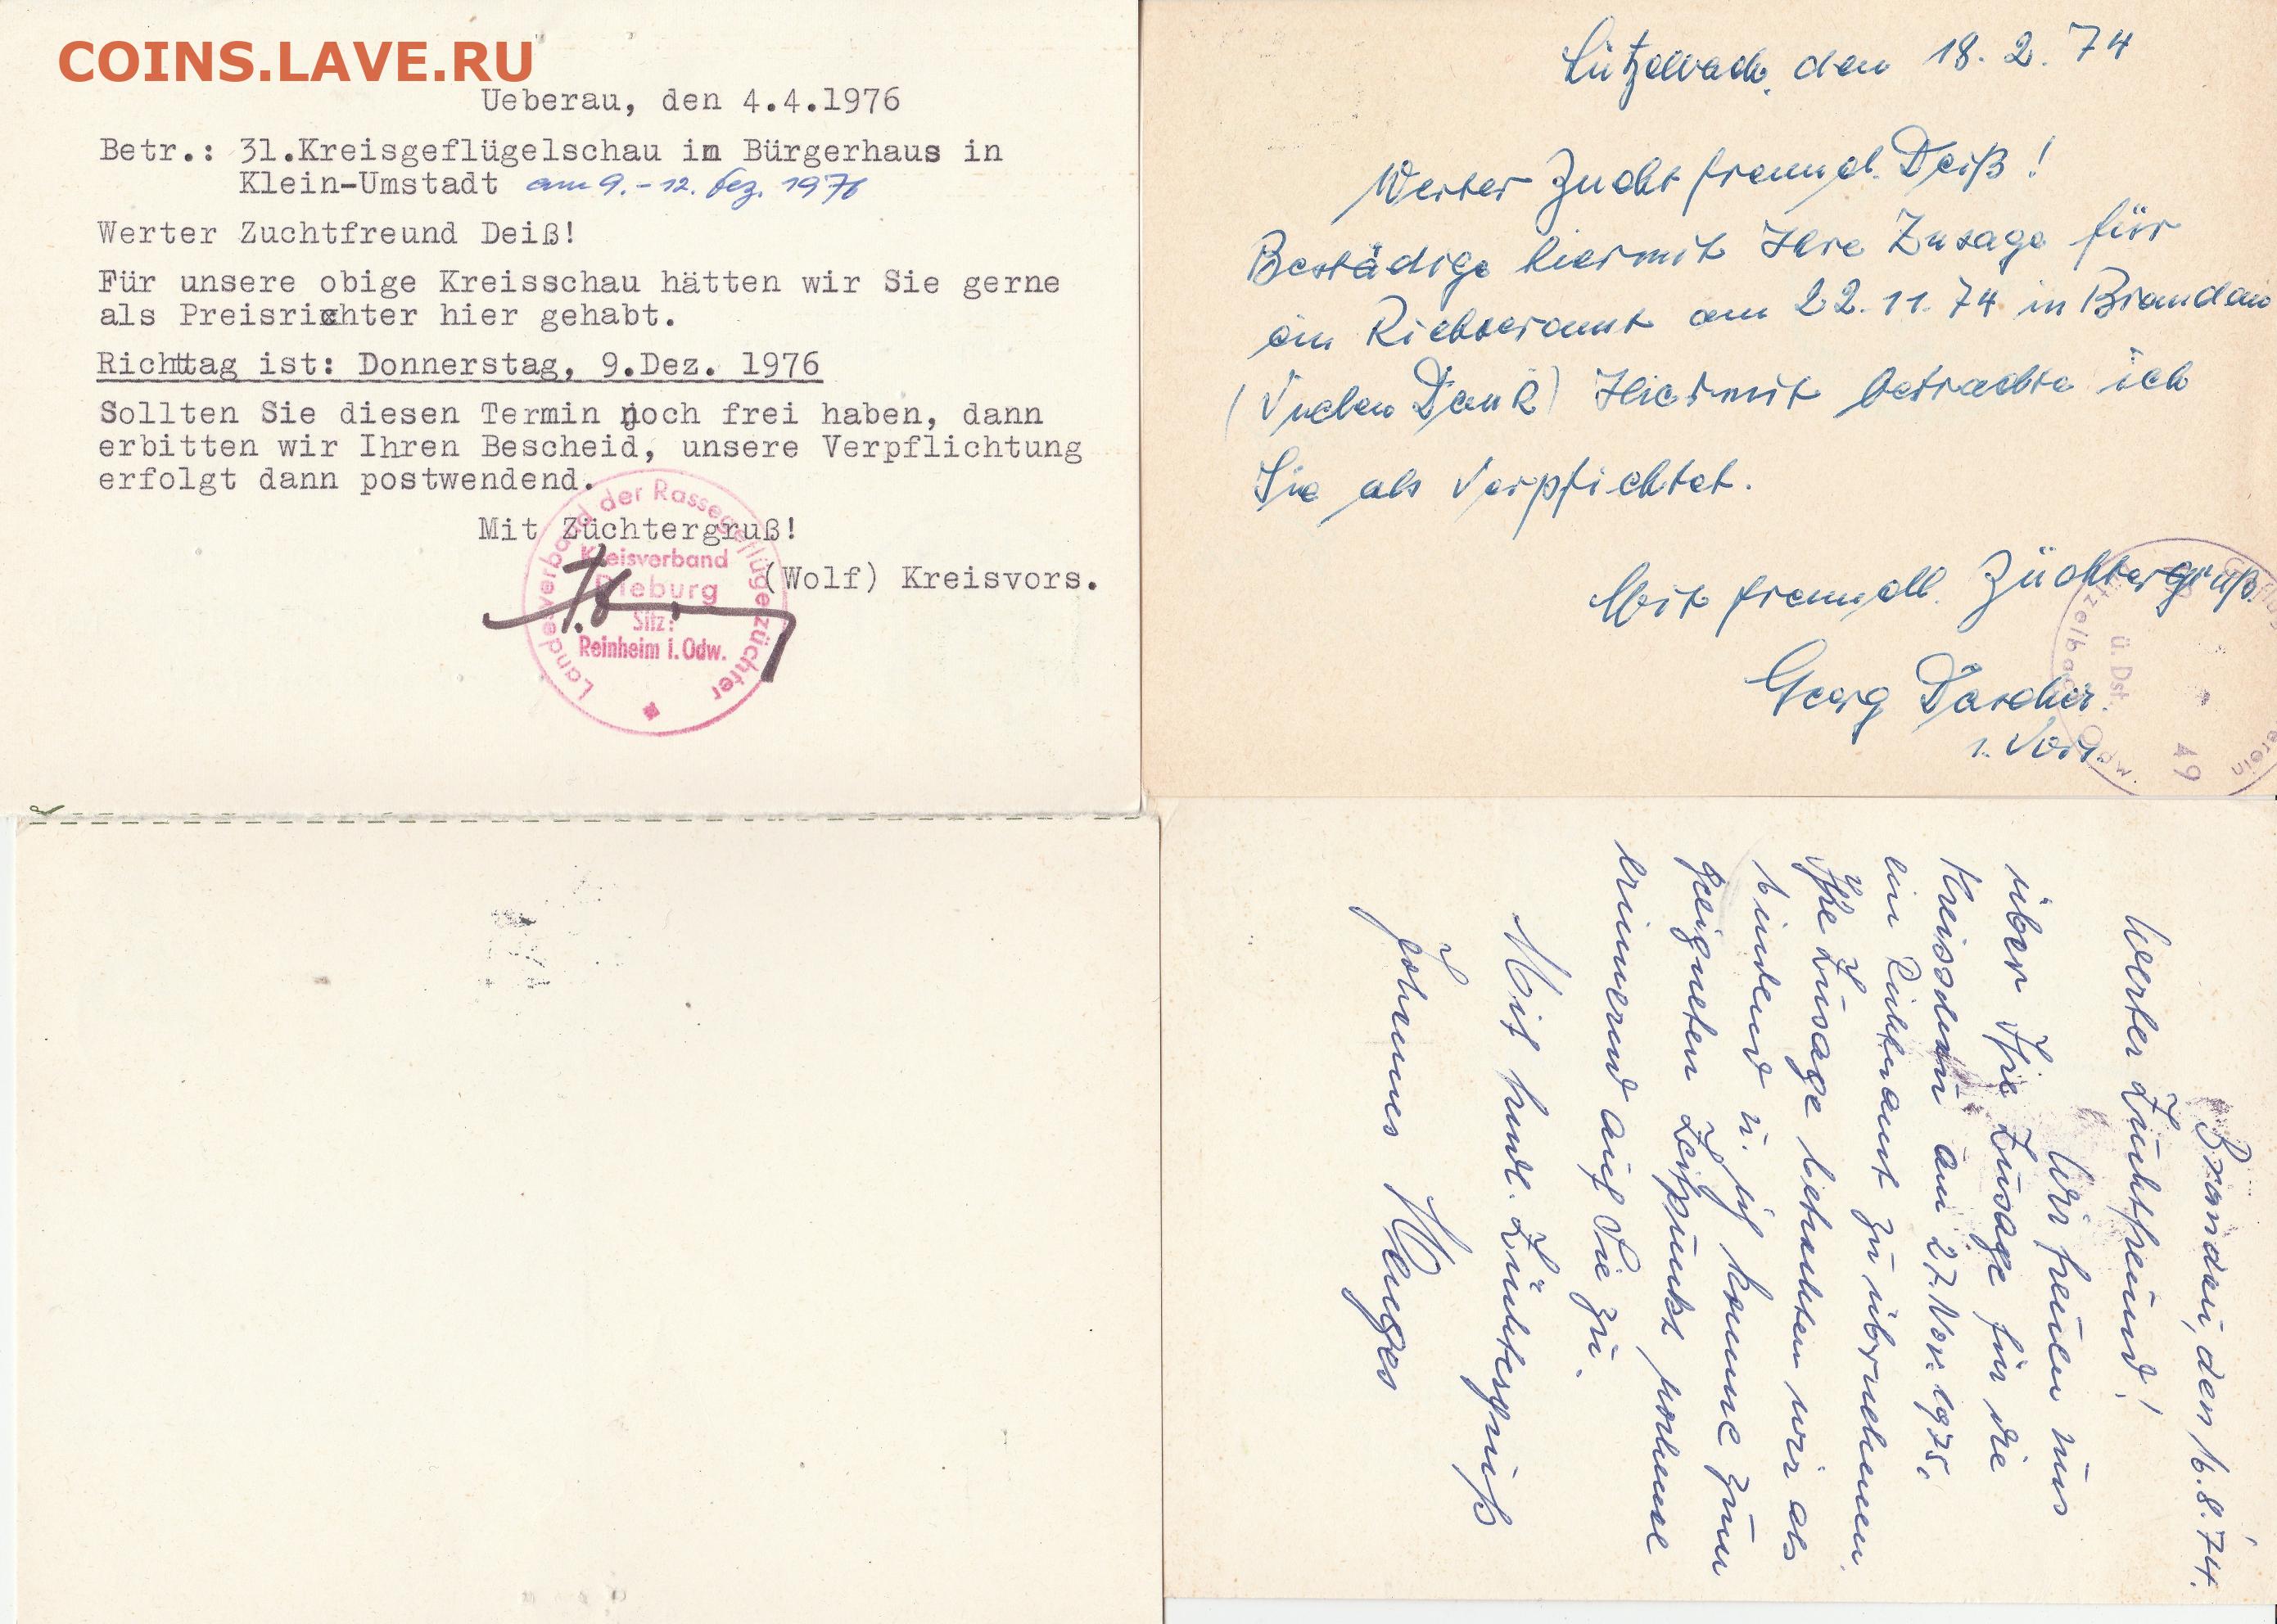 COINS.LAVE.RU
Ueberau, den 4.4.1976
Betr.: 31.Kreisgeflügelschau in Bürgerhaus in
Klein-Umstadt am 9.-12. Dez. 1976
Werter Zuchtfreund Deiß!
Für unsere obige Kreisschau hätten wir Sie gerne
als Preisrichter hier gehabt.
Richttag ist: Donnerstag, 9.Dez. 1976
Sollten Sie diesen Termin noch frei haben, dann
erbitten wir Ihren Bescheid, unsere Verpflichtung
erfolgt dann postwendend.
Mit Züchtergruß!
(Wolf) Kreisvors.
Landesverband der Rassegeflügelzüchter
Kreisverband
Dieburg
Sitz:
Reinheim i. Odw.
Lützelbach, den 18. 2. 74
Werter Zuchtfreund Deiß!
Bestädige hiermit Ihre Zusage für
ein Richteramt am 22.11.74 in Brandau
(Vielen Dank) Hiermit betrachte ich
Sie als Verpflichtet.
Mit freundl. Züchtergruß.
Georg Dascher
1. Vors.
ü. Dst.
Odw.
49
erein
Brandau, den 16.8.74.
Werter Zuchtfreund!
Wir freuen uns
über Ihre Zusage für die
Kreisschau am 27. Nov. 1975,
ein Richteramt zu übernehmen.
Ihre Zusage betrachten wir als
bindend u. ich komme zum
geeigneten Zeitpunkt nochmal
erinnernd auf Sie zu.
Mit frndl. Züchtergruß
Johannes Menges